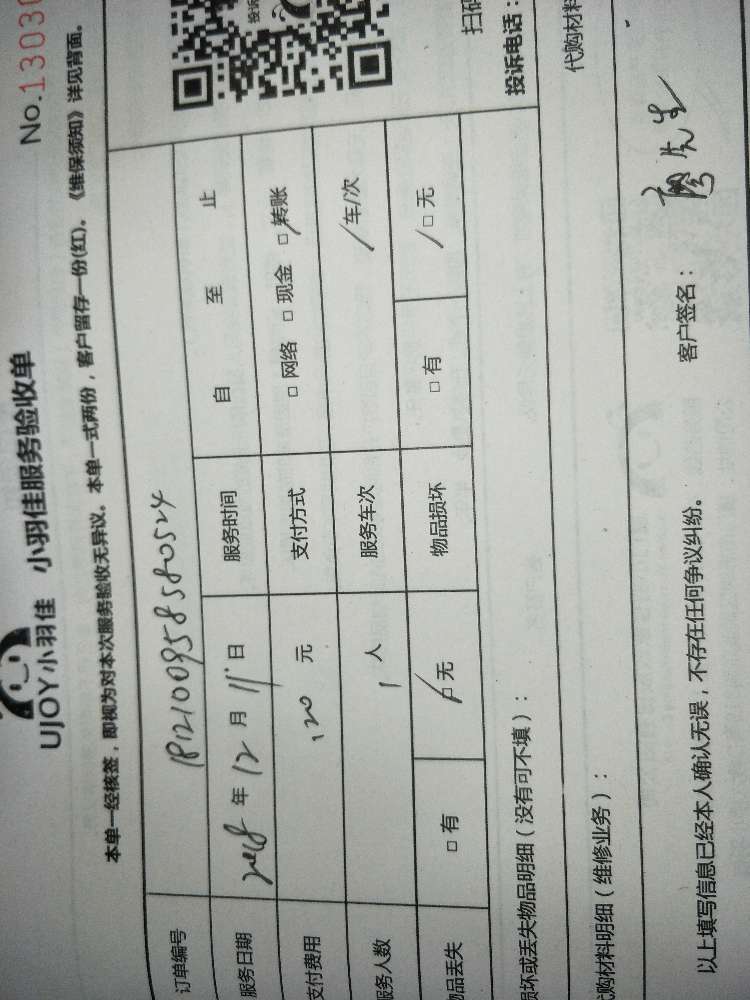 UJOY小羽佳 小羽佳服务验收单
No.1303
本单一经核签，即视为对本次服务验收无异议。本单一式两份，客户留存一份(红)。《维保须知》详见背面。
投诉
订单编号 1812100958580524
服务日期 2018 年 12 月 11 日 服务时间 自 至 止
支付费用 120 元 支付方式 □ 网络 □ 现金 □ 转账
服务人数 1 人 服务车次 / 车/次
物品丢失 □ 有 □ 无 物品损坏 □ 有 □ 无
扫码
投诉电话：
损坏或丢失物品明细（没有可不填）：
代购材料
代购材料明细（维修业务）：
以上填写信息已经本人确认无误，不存在任何争议纠纷。 客户签名： 廖先生